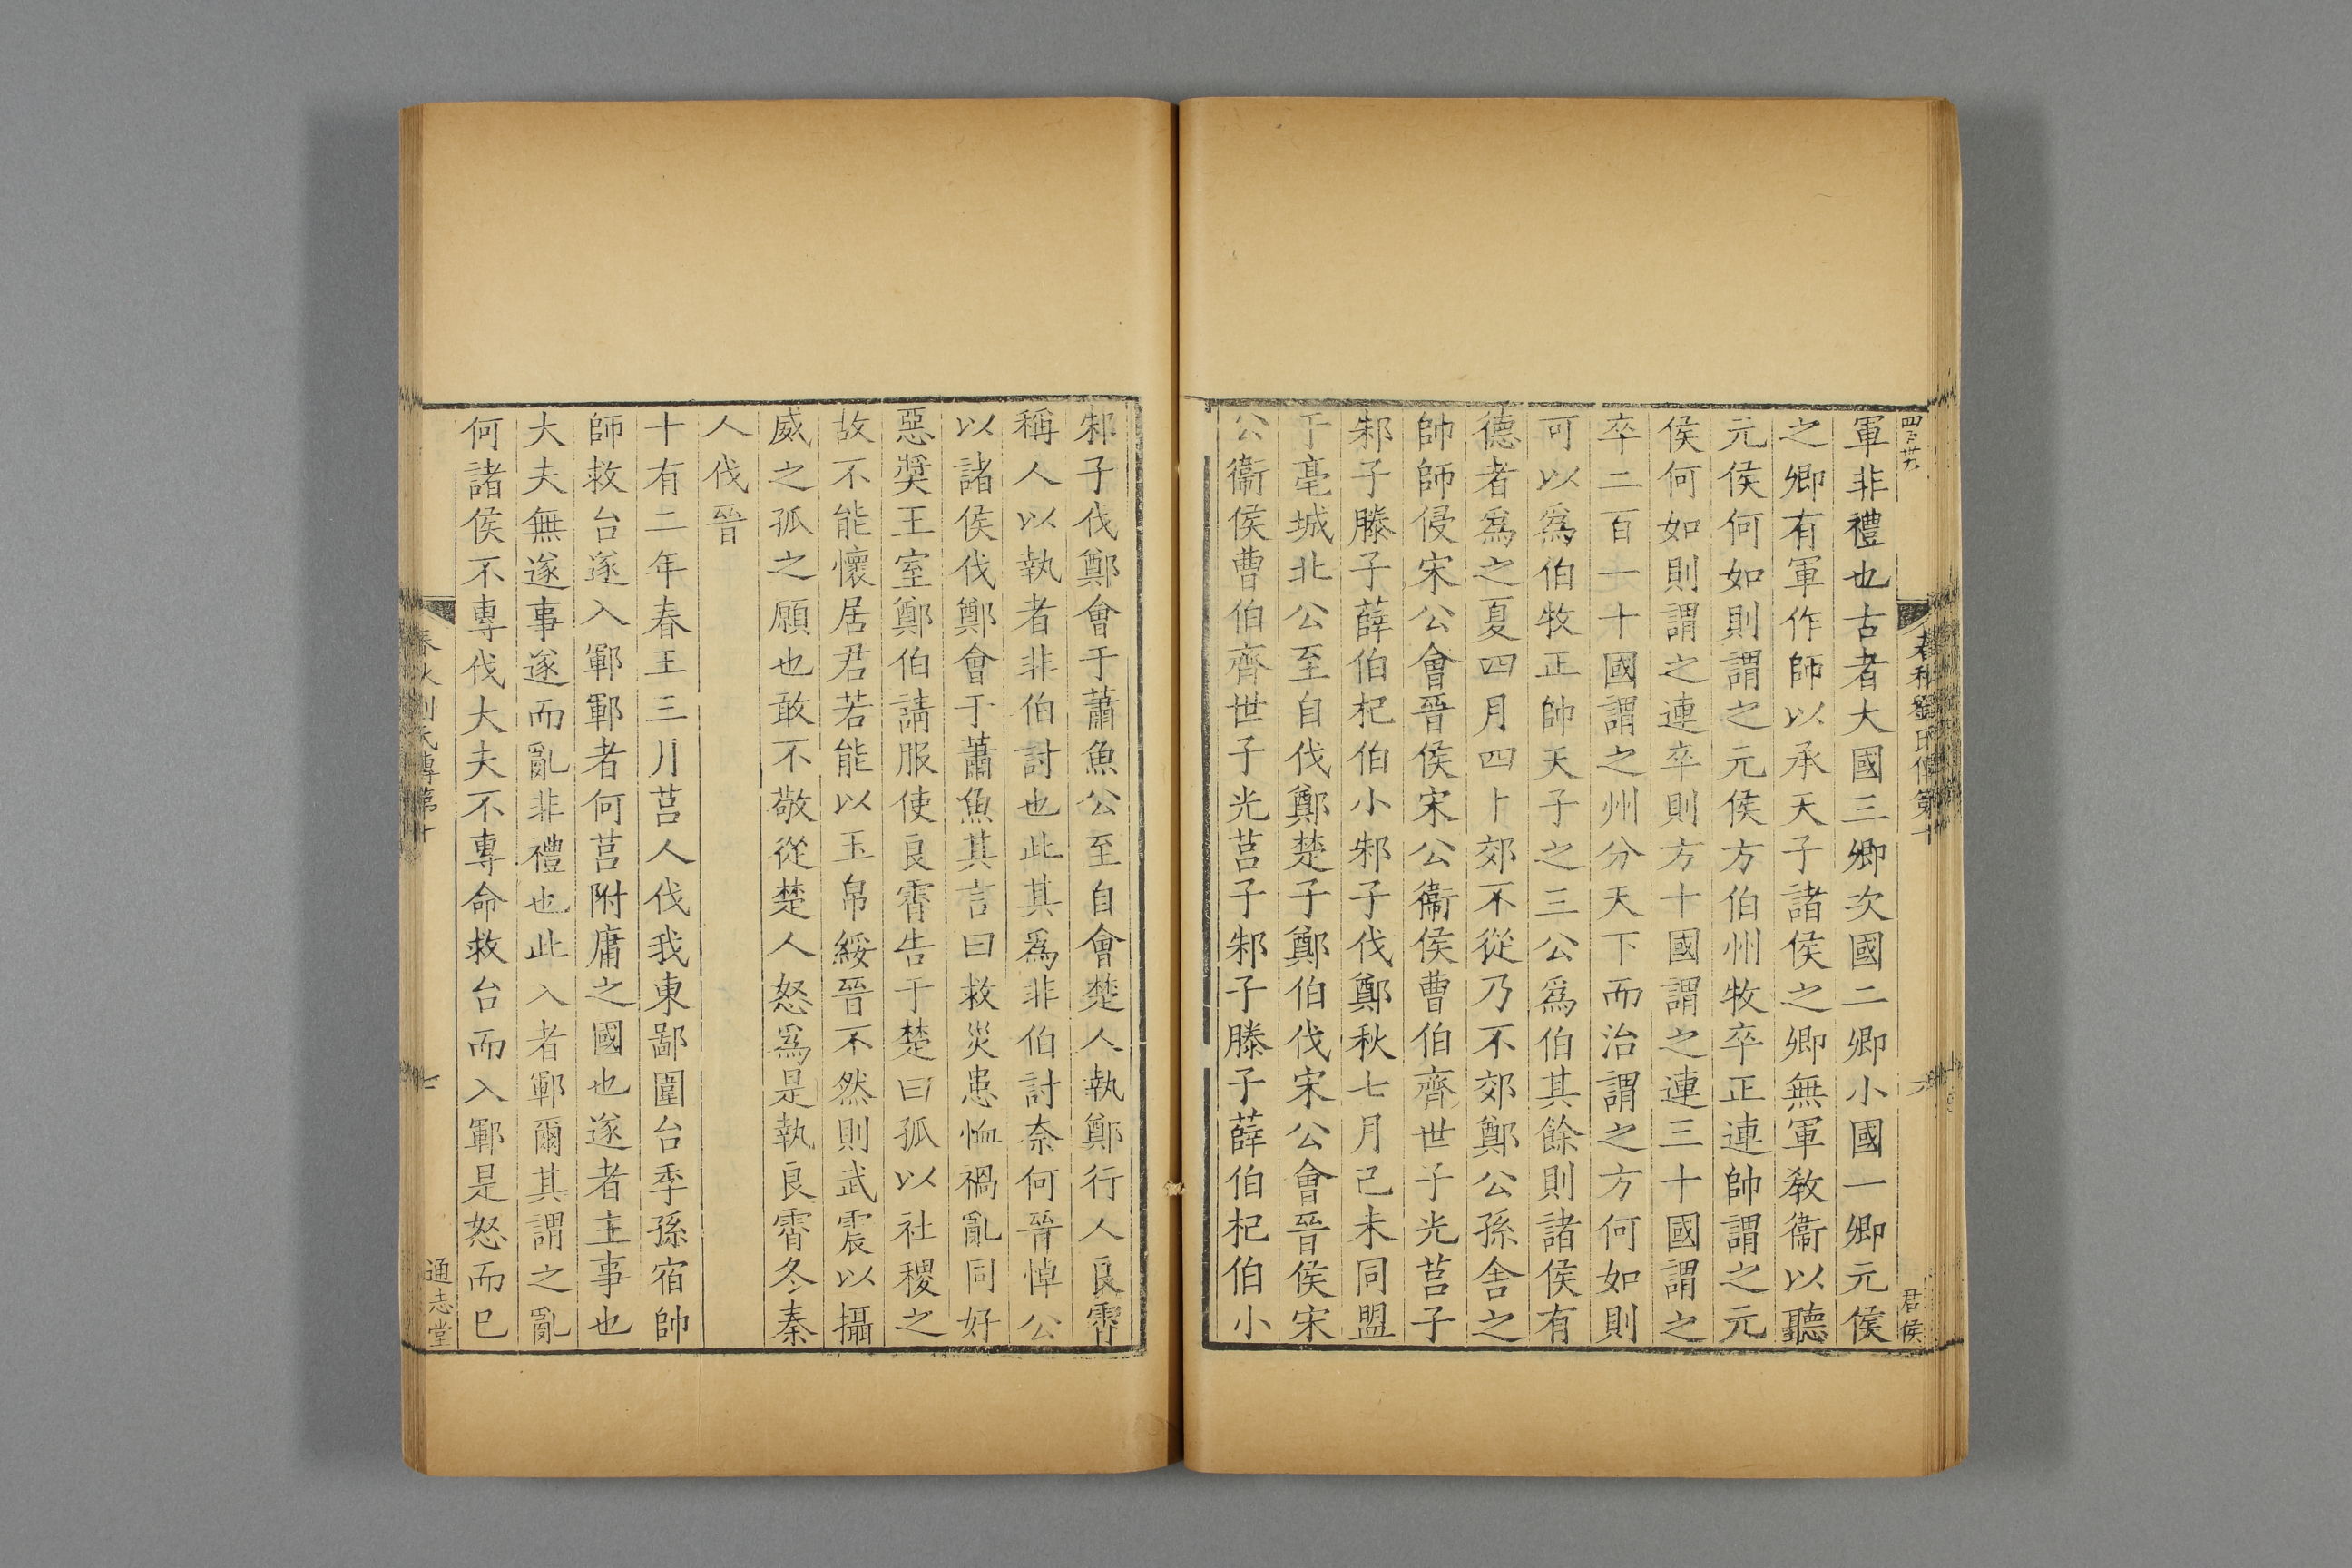 軍非禮也古者大國三卿次國二卿小國一卿元侯
之卿有軍作師以承天子諸侯之卿無軍教衞以聽
元侯何如則謂之元侯方伯州牧卒正連帥謂之元
侯何如則謂之連卒則方十國謂之連三十國謂之
卒二百一十國謂之州分天下而治謂之方何如則
可以爲伯牧正帥天子之三公爲伯其餘則諸侯有
德者爲之夏四月四卜郊不從乃不郊鄭公孫舍之
帥師侵宋公會晉侯宋公衞侯曹伯齊世子光莒子
邾子滕子薛伯杞伯小邾子伐鄭秋七月己未同盟
于亳城北公至自伐鄭楚子鄭伯伐宋公會晉侯宋
公衞侯曹伯齊世子光莒子邾子滕子薛伯杞伯小
邾子伐鄭會于蕭魚公至自會楚人執鄭行人良霄
稱人以執者非伯討也此其爲非伯討奈何晉悼公
以諸侯伐鄭會于蕭魚其言曰救災患恤禍亂同好
惡奬王室鄭伯請服使良霄告于楚曰孤以社稷之
故不能懷居君若能以玉帛綏晉不然則武震以攝
威之孤之願也敢不敬從楚人怒爲是執良霄冬秦
人伐晉
十有二年春王三月莒人伐我東鄙圍台季孫宿帥
師救台遂入鄆鄆者何莒附庸之國也遂者主事也
大夫無遂事遂而亂非禮也此入者鄆爾其謂之亂
何諸侯不專伐大夫不專命救台而入鄆是怒而已
春秋劉氏傳第十
七
通志堂
春秋劉氏傳第十
六
君侯